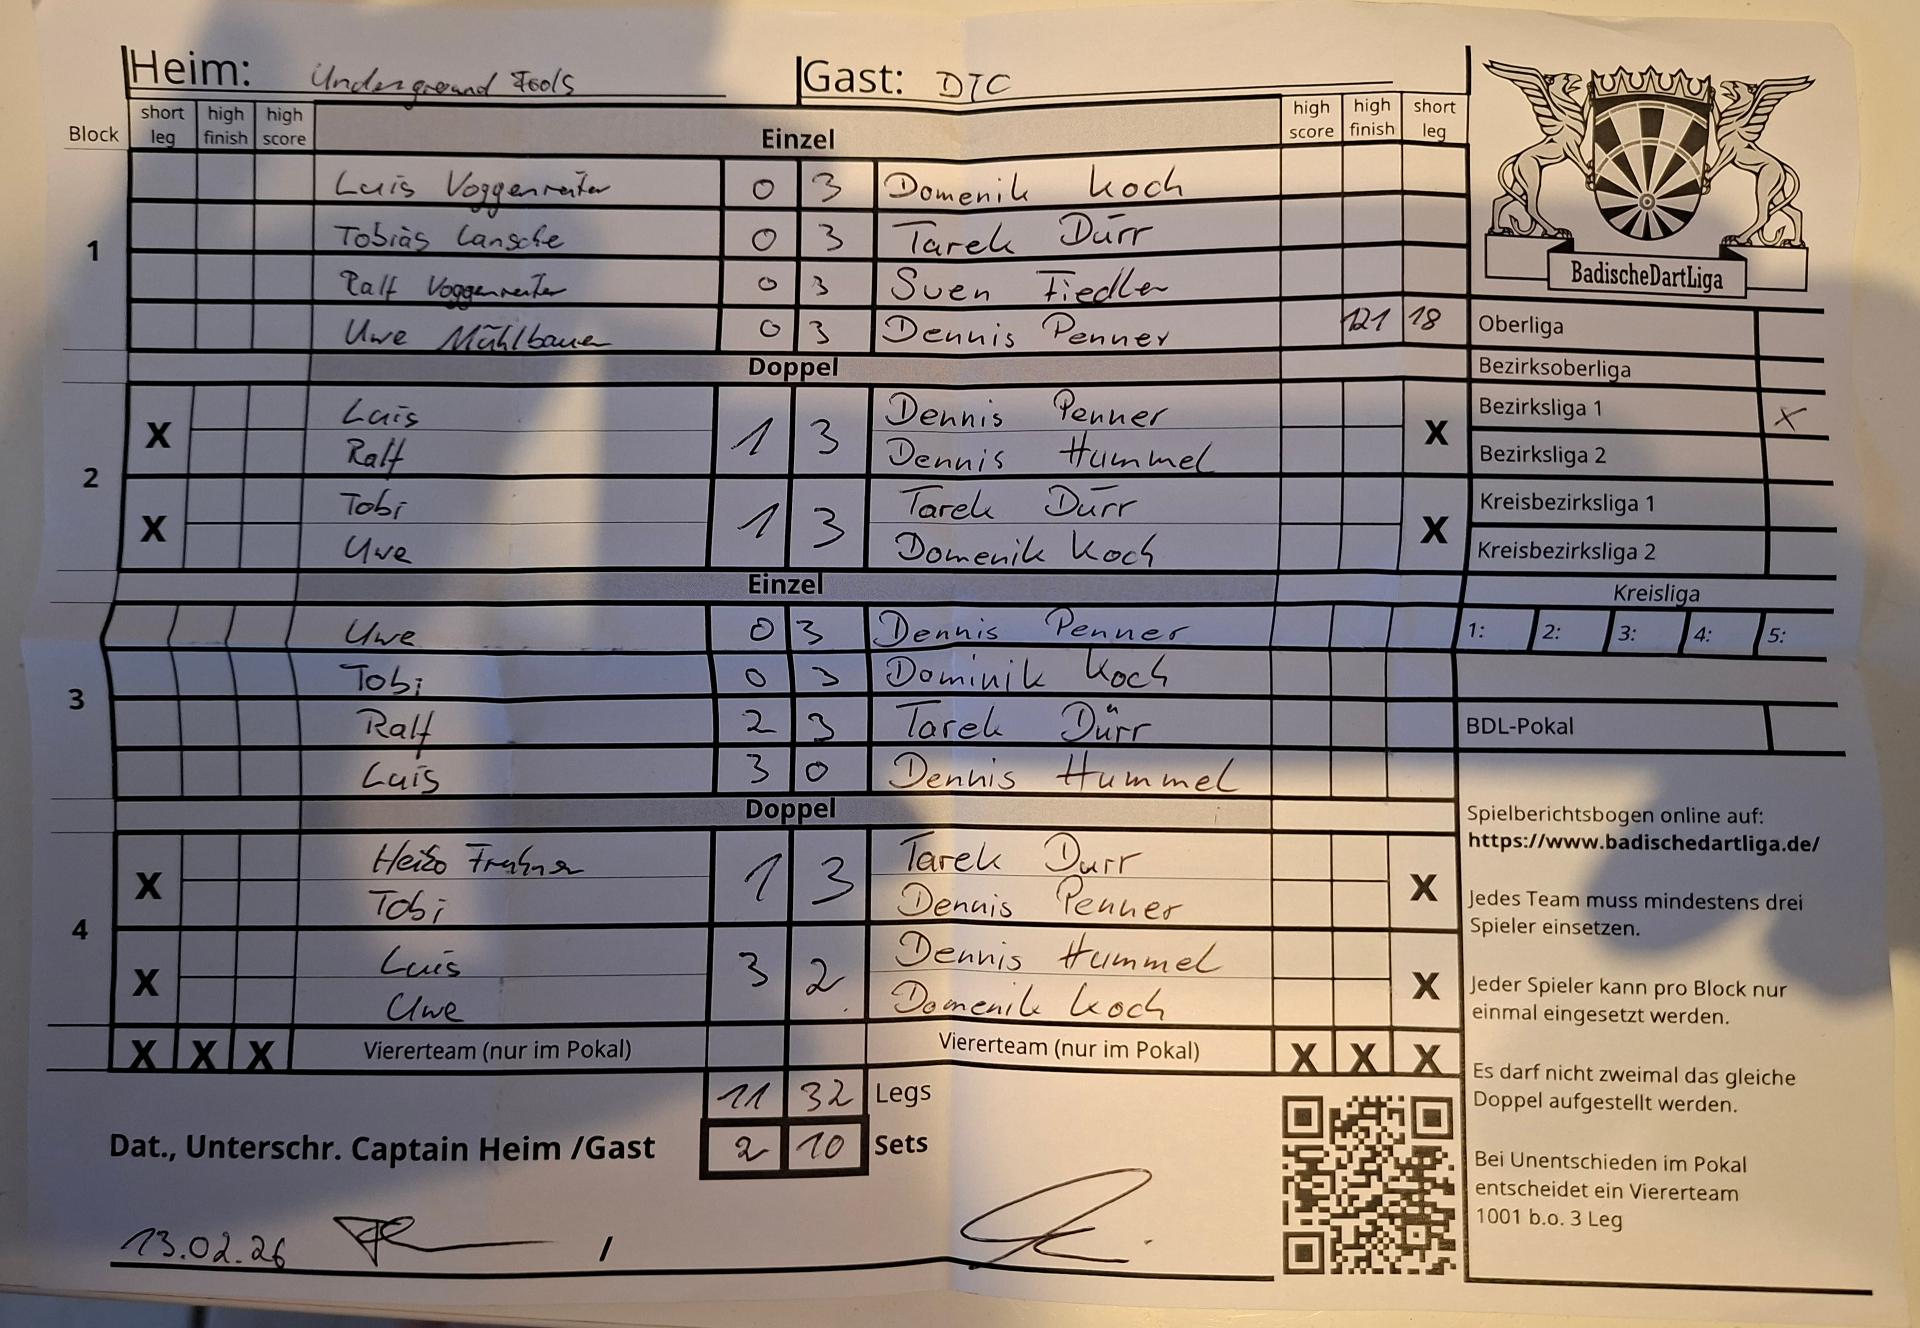 Heim: Underground Fools Gast: DTC
Block short leg high finish high score Einzel high score high finish short leg
1
Luis Voggenreiter 0 3 Domenik Koch
Tobias Lansche 0 3 Tarek Dürr
Ralf Voggenreiter 0 3 Sven Fiedler
Uwe Mühlbauer 0 3 Dennis Penner 121 18
BadischeDartLiga
Oberliga
Bezirksoberliga
Bezirksliga 1 X
Bezirksliga 2
Kreisbezirksliga 1
Kreisbezirksliga 2
Kreisliga
1: 2: 3: 4: 5:
BDL-Pokal
Doppel
2
X Luis 1 3 Dennis Penner X
Ralf Dennis Hummel
X Tobi 1 3 Tarek Dürr X
Uwe Domenik Koch
Einzel
3
Uwe 0 3 Dennis Penner
Tobi 0 3 Dominik Koch
Ralf 2 3 Tarek Dürr
Luis 3 0 Dennis Hummel
Doppel
4
X Heiko 1 3 Tarek Durr X
Tobi Dennis Penner
X Luis 3 2 Dennis Hummel X
Uwe Domenik Koch
X X X Viererteam (nur im Pokal) Viererteam (nur im Pokal) X X X
11 32 Legs
Dat., Unterschr. Captain Heim /Gast 2 10 Sets
13.02.26 /
Spielberichtsbogen online auf:
https://www.badischedartliga.de/
Jedes Team muss mindestens drei
Spieler einsetzen.
Jeder Spieler kann pro Block nur
einmal eingesetzt werden.
Es darf nicht zweimal das gleiche
Doppel aufgestellt werden.
Bei Unentschieden im Pokal
entscheidet ein Viererteam
1001 b.o. 3 Leg